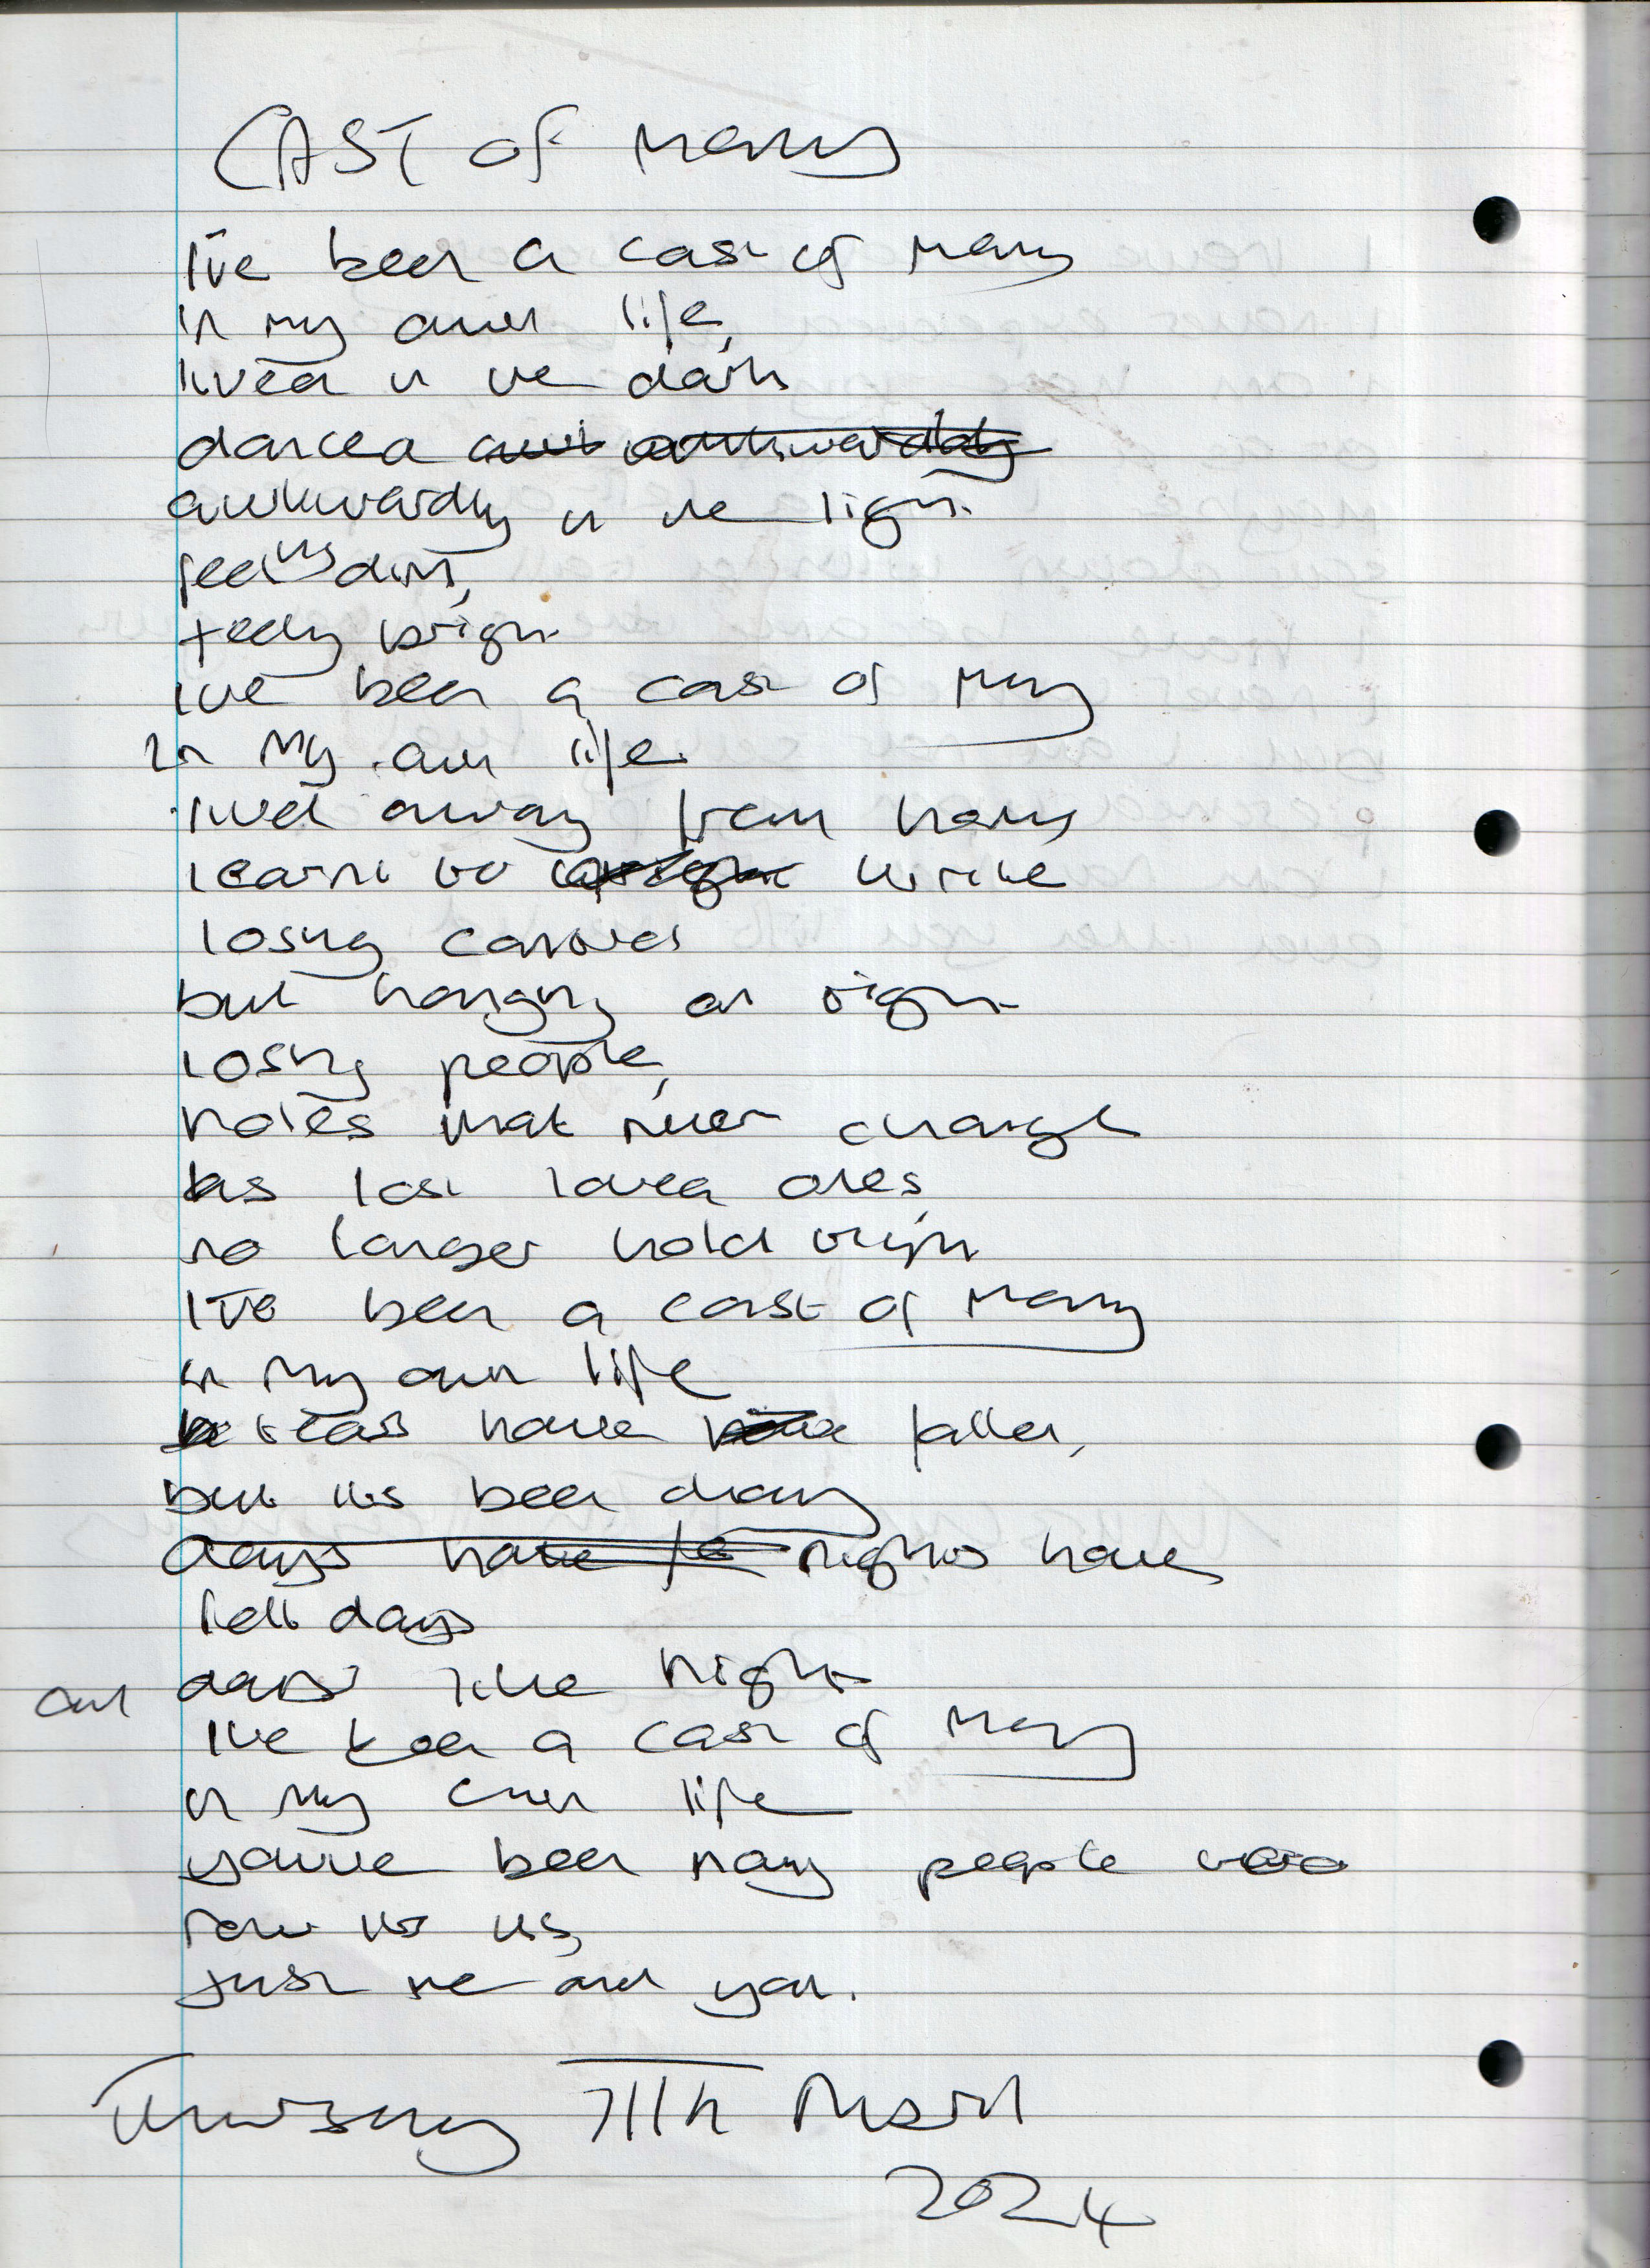 CAST of Many
I've been a cast of many
in my own life,
lived in the dark
danced awk awkwardly
awkwardly in the light
feeling dim,
feeling bright
I've been a cast of many
In my own life.
lived away from home
learnt to write
losing control
but hanging on tight
losing people,
roles that never change
as lost loved ones,
no longer hold tight
I've been a cast of many
in my own life
tears have fallen,
but its been
days have fe nights have
felt days
and days like night
I've been a cast of many
in my own life
you've been many people too
now its us,
just me and you.
Thursday 11th April
2024